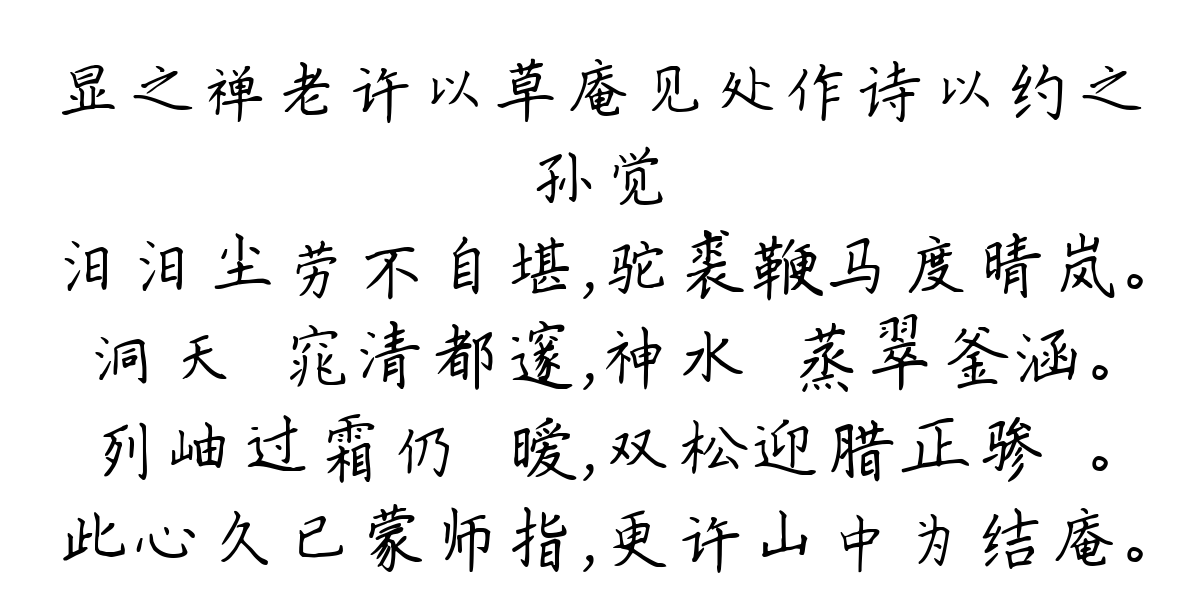 显之禅老许以草庵见处作诗以约之
孙觉
汩汩尘劳不自堪,驼裘鞭马度晴岚。
洞天 窕清都邃,神水 蒸翠釜涵。
列岫过霜仍 暧,双松迎腊正骖 。
此心久已蒙师指,更许山中为结庵。